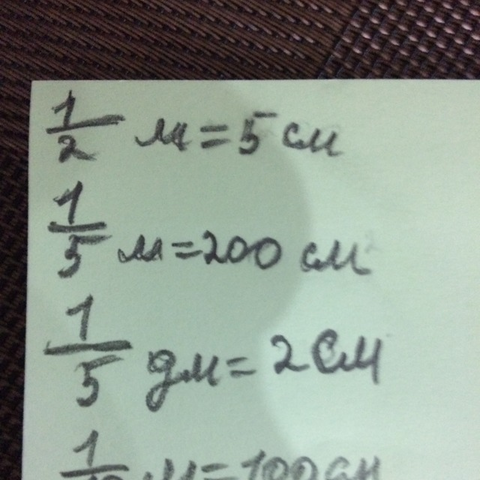 1/2 м = 5 см
1/5 м = 200 см
1/5 дм = 2 см
м = 100 см